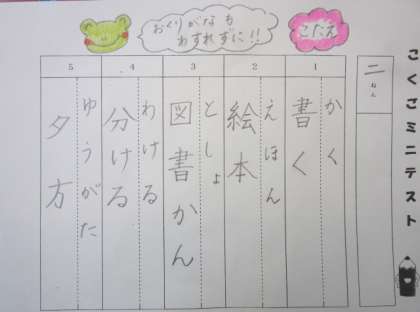 こくごミニテスト
二ねん
こたえ
おくりがなも
わすれずに!!
1
かく
書く
2
えほん
絵本
3
としょ
図書かん
4
わける
分ける
5
ゆうがた
夕方